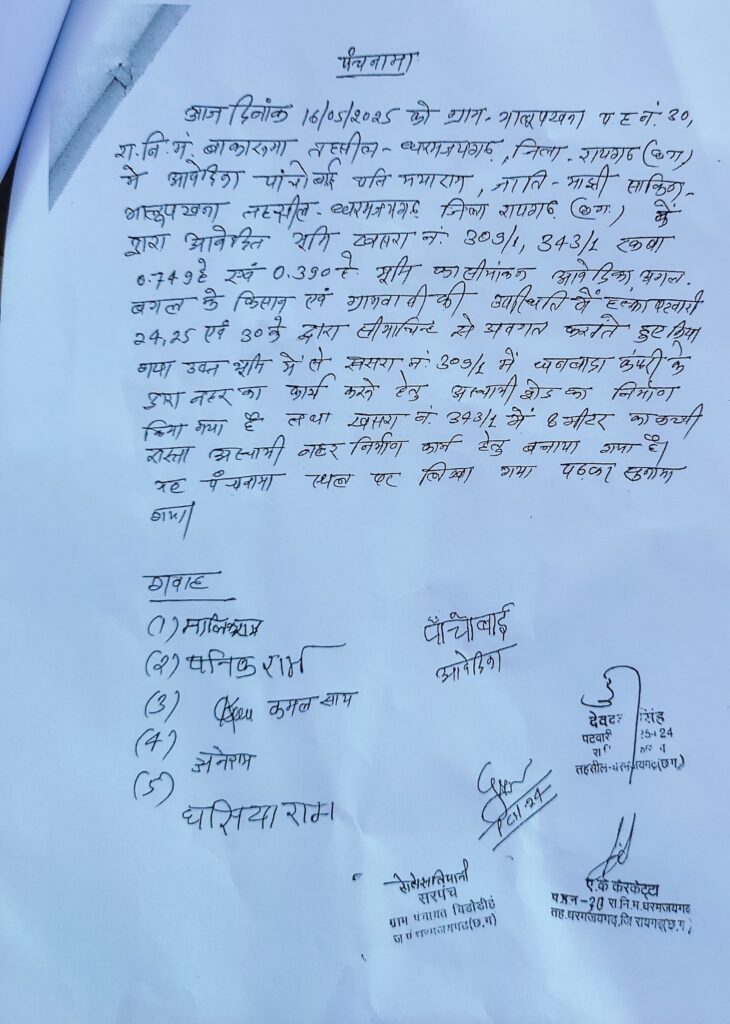 पंचनामा
आज दिनांक 16/05/2025 को ग्राम-भालूपखना प ह नं. 30,
रा.नि.मं. बाकारूमा तहसील-धरमजयगढ़, जिला-रायगढ़ (छ.ग)
में आवेदिका पांचोबाई पति मयाराम, जाति-माझी साकिन-
भालूपखना तहसील-धरमजयगढ़ जिला रायगढ़ (छ.ग.) के
द्वारा आवेदित भूमि खसरा नं. 309/1, 343/1 रकबा
0.749 हे एवं 0.390 हे. भूमि का सीमांकन आवेदिका अगल-
बगल के किसान एवं ग्रामवासी की उपस्थिति में हल्का पटवारी
24,25 एवं 30 के द्वारा सीमाचिन्ह से अवगत कराते हुए किया
गया उक्त भूमि में से खसरा नं. 309/1 में धनवादा कंपनी के
द्वारा नहर का कार्य करने हेतु अस्थायी रोड का निर्माण
किया गया है तथा खसरा नं. 343/1 में 8 मीटर का कच्ची
रास्ता अस्थायी नहर निर्माण कार्य हेतु बनाया गया है।
यह पंचनामा स्थल पर लिखा गया पढ़कर सुनाया
गया।
गवाह
(1) मालिकराम
(2) पनिक राम
(3) कमल साय
(4) अनेराम
(5) घसिया राम
पाँचोबाई
आवेदिका
देवदत्त सिंह
पटवारी 24
तहसील-धरमजयगढ़(छ.ग.)
सरपंच
ग्राम पंचायत चिडोडीह
ज पं धरमजयगढ़(छ.ग)
ए.के केरकेट्टा
प.ह.न-30 रा.नि.म.धरमजयगढ़
तह.धरमजयगढ़,जि रायगढ़(छ.ग.)